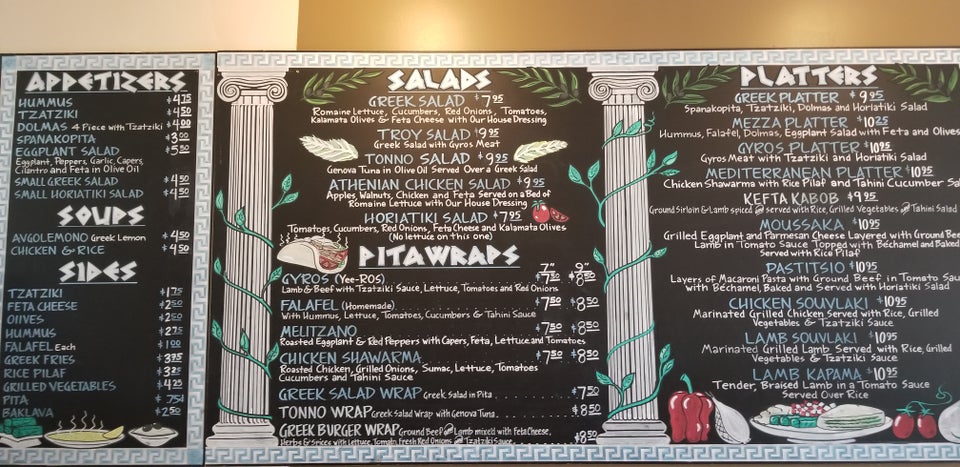 APPETIZERS
HUMMUS $4.75
TZATZIKI $4.50
DOLMAS 4 Piece with Tzatziki $4.00
SPANAKOPITA $3.00
EGGPLANT SALAD $5.50
Eggplant, Peppers, Garlic, Capers,
Cilantro and Feta in Olive Oil
SMALL GREEK SALAD $4.50
SMALL HORIATIKI SALAD $4.50
SOUPS
AVGOLEMONO Greek Lemon $4.50
CHICKEN & RICE $4.50
SIDES
TZATZIKI $1.75
FETA CHEESE $2.50
OLIVES $2.50
HUMMUS $2.75
FALAFEL Each $1.00
GREEK FRIES
RICE PILAF
GRILLED VEGETABLES $4.25
PITA .75¢
BAKLAVA $2.50
SALADS
GREEK SALAD $7.95
Romaine Lettuce, Cucumbers, Red Onions, Tomatoes,
Kalamata Olives & Feta Cheese with Our House Dressing
TROY SALAD $9.95
Greek Salad with Gyros Meat
TONNO SALAD $9.25
Genova Tuna in Olive Oil Served Over a Greek Salad
ATHENIAN CHICKEN SALAD $9.95
Apples, Walnuts, Chicken and Feta Served on a Bed of
Romaine Lettuce with Our House Dressing
HORIATIKI SALAD $7.95
Tomatoes, Cucumbers, Red Onions, Feta Cheese and Kalamata Olives
(No lettuce on this one)
PITA WRAPS
7" 9"
GYROS (Yee-ROS) $7.50 $8.50
Lamb & Beef with Tzatziki Sauce, Lettuce, Tomatoes and Red Onions
FALAFEL (Homemade) $7.50 $8.50
With Hummus, Lettuce, Tomatoes, Cucumbers & Tahini Sauce
MELITZANO $7.50 $8.50
Roasted Eggplant & Red Peppers with Capers, Feta, Lettuce and Tomatoes
CHICKEN SHAWARMA $7.50 $8.50
Roasted Chicken, Grilled Onions, Sumac, Lettuce, Tomatoes
Cucumbers and Tahini Sauce
GREEK SALAD WRAP Greek Salad in Pita $7.50
TONNO WRAP Greek Salad Wrap with Genova Tuna $8.50
GREEK BURGER WRAP Ground Beef and Lamb mixed with Feta Cheese,
Herbs & Spices with Lettuce, Tomato, Fresh Red Onions and Tzatziki Sauce $8.50
PLATTERS
GREEK PLATTER $9.95
Spanakopita, Tzatziki, Dolmas and Horiatiki Salad
MEZZA PLATTER $10.25
Hummus, Falafel, Dolmas, Eggplant Salad with Feta and Olives
GYROS PLATTER $10.95
Gyros Meat with Tzatziki and Horiatiki Salad
MEDITERRANEAN PLATTER $10.95
Chicken Shawarma with Rice Pilaf and Tahini Cucumber Sal
KEFTA KABOB $9.95
Ground Sirloin & Lamb spiced and served with Rice, Grilled Vegetables and Tahini Salad
MOUSSAKA $10.95
Grilled Eggplant and Parmesan Cheese Layered with Ground Bee
Lamb in Tomato Sauce Topped with Béchamel and Baked
Served with Rice Pilaf
PASTITSIO $10.95
Layers of Macaroni Pasta with Ground Beef in Tomato Sau
with Béchamel, Baked and Served with Horiatiki Salad
CHICKEN SOUVLAKI $10.95
Marinated Grilled Chicken Served with Rice, Grilled
Vegetables & Tzatziki Sauce
LAMB SOUVLAKI $10.95
Marinated Grilled Lamb Served with Rice, Grilled
Vegetables & Tzatziki Sauce
LAMB KAPAMA $10.95
Tender, Braised Lamb in a Tomato Sauce
Served Over Rice